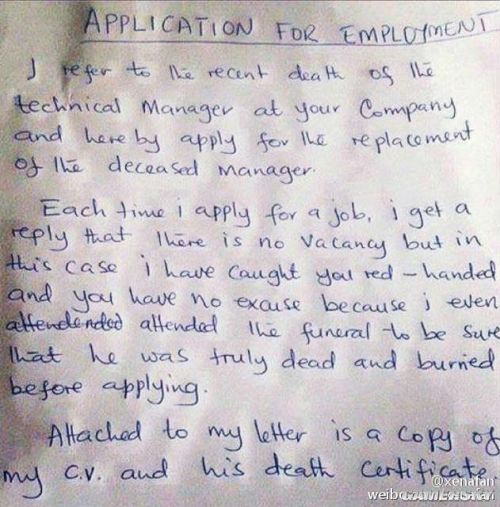 APPLICATION FOR EMPLOYMENT
I refer to the recent death of the
technical Manager at your Company
and here by apply for the replacement
of the deceased Manager.
Each time i apply for a job, i get a
reply that there is no Vacancy but in
this case i have caught you red-handed
and you have no excuse because i even
attendended attended the funeral to be sure
that he was truly dead and buried
before applying.
Attached to my letter is a copy of
my C.V. and his death certificate.
@xenafan